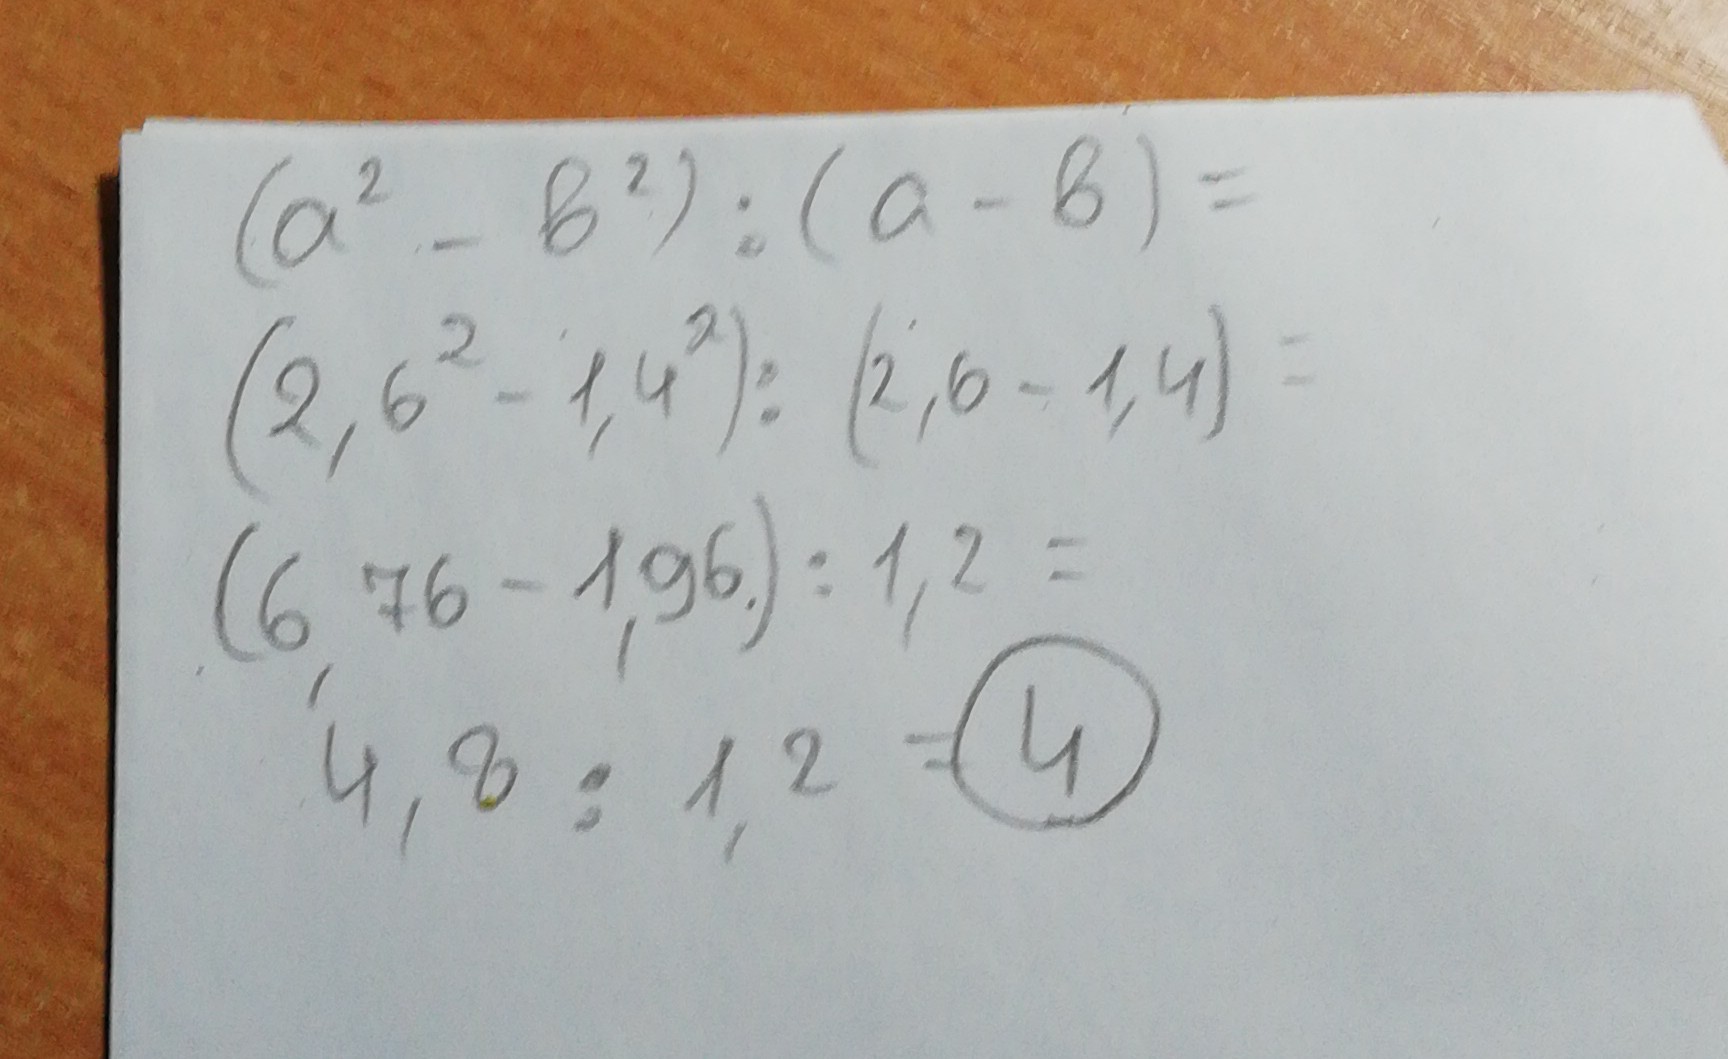 (a² - b²) : (a - b) =
(2,6² - 1,4²) : (2,6 - 1,4) =
(6,76 - 1,96) : 1,2 =
4,8 : 1,2 = 4